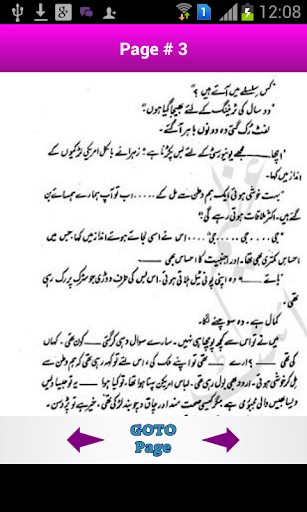 12:08
Page # 3
"کس سلسلے میں آتے ہیں ؟"
"دو سال کی ٹریننگ کے لئے بھیجا گیا ہوں"
لفٹ رک گئی وہ دونوں باہر آگئے۔
"اچھا مجھے یونیورسٹی کے لئے بس پکڑنا ہے" زہرا نے بالکل امریکی لڑکیوں کے
انداز میں کہا۔
"بہت خوشی ہوئی ایک ہم وطن سے مل کے ..... اب تو آپ ہمارے ہمسائے بن
گئے ہیں۔ اکثر ملاقات ہوتی رہے گی"
"جی ..... جی ..... جی" اس نے اسی لجاتے ہوئے انداز میں کہا جس میں
احساس کمتری بھی تھا۔ اور اجنبیت کا احساس بھی
وہ اپنی پونی ٹیل ہلاتی ہوئی۔ اس بس کی طرف دوڑی جو سٹرک پر رک رہی
تھی۔
کمال ہے۔ وہ سوچنے لگا۔
میں نے تو اس سے کچھ پوچھا ہی نہیں۔ سارے سوال وہی کر گئی کون تھی۔ کہاں
تھی؟ ارے تھی تو اپنے ملک کی۔ اس لئے تو کہہ رہی تھی کہ ہم وطن سے
مل کر خوشی ہوئی۔ اردو بھی بول رہی تھی۔ لباس امریکن پہنا ہوا تھا۔ تو کیا ہوا جیسا دیس
ویسا بھیس والی مجبوری ہے مگر کیسی صحت مند اور چاق و چوبند لڑکی تھی۔ خیر ہے تو پڑوسن۔
GOTO
Page